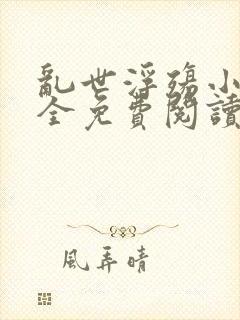 亂世浮殤小
全免費閱讀
風弄晴